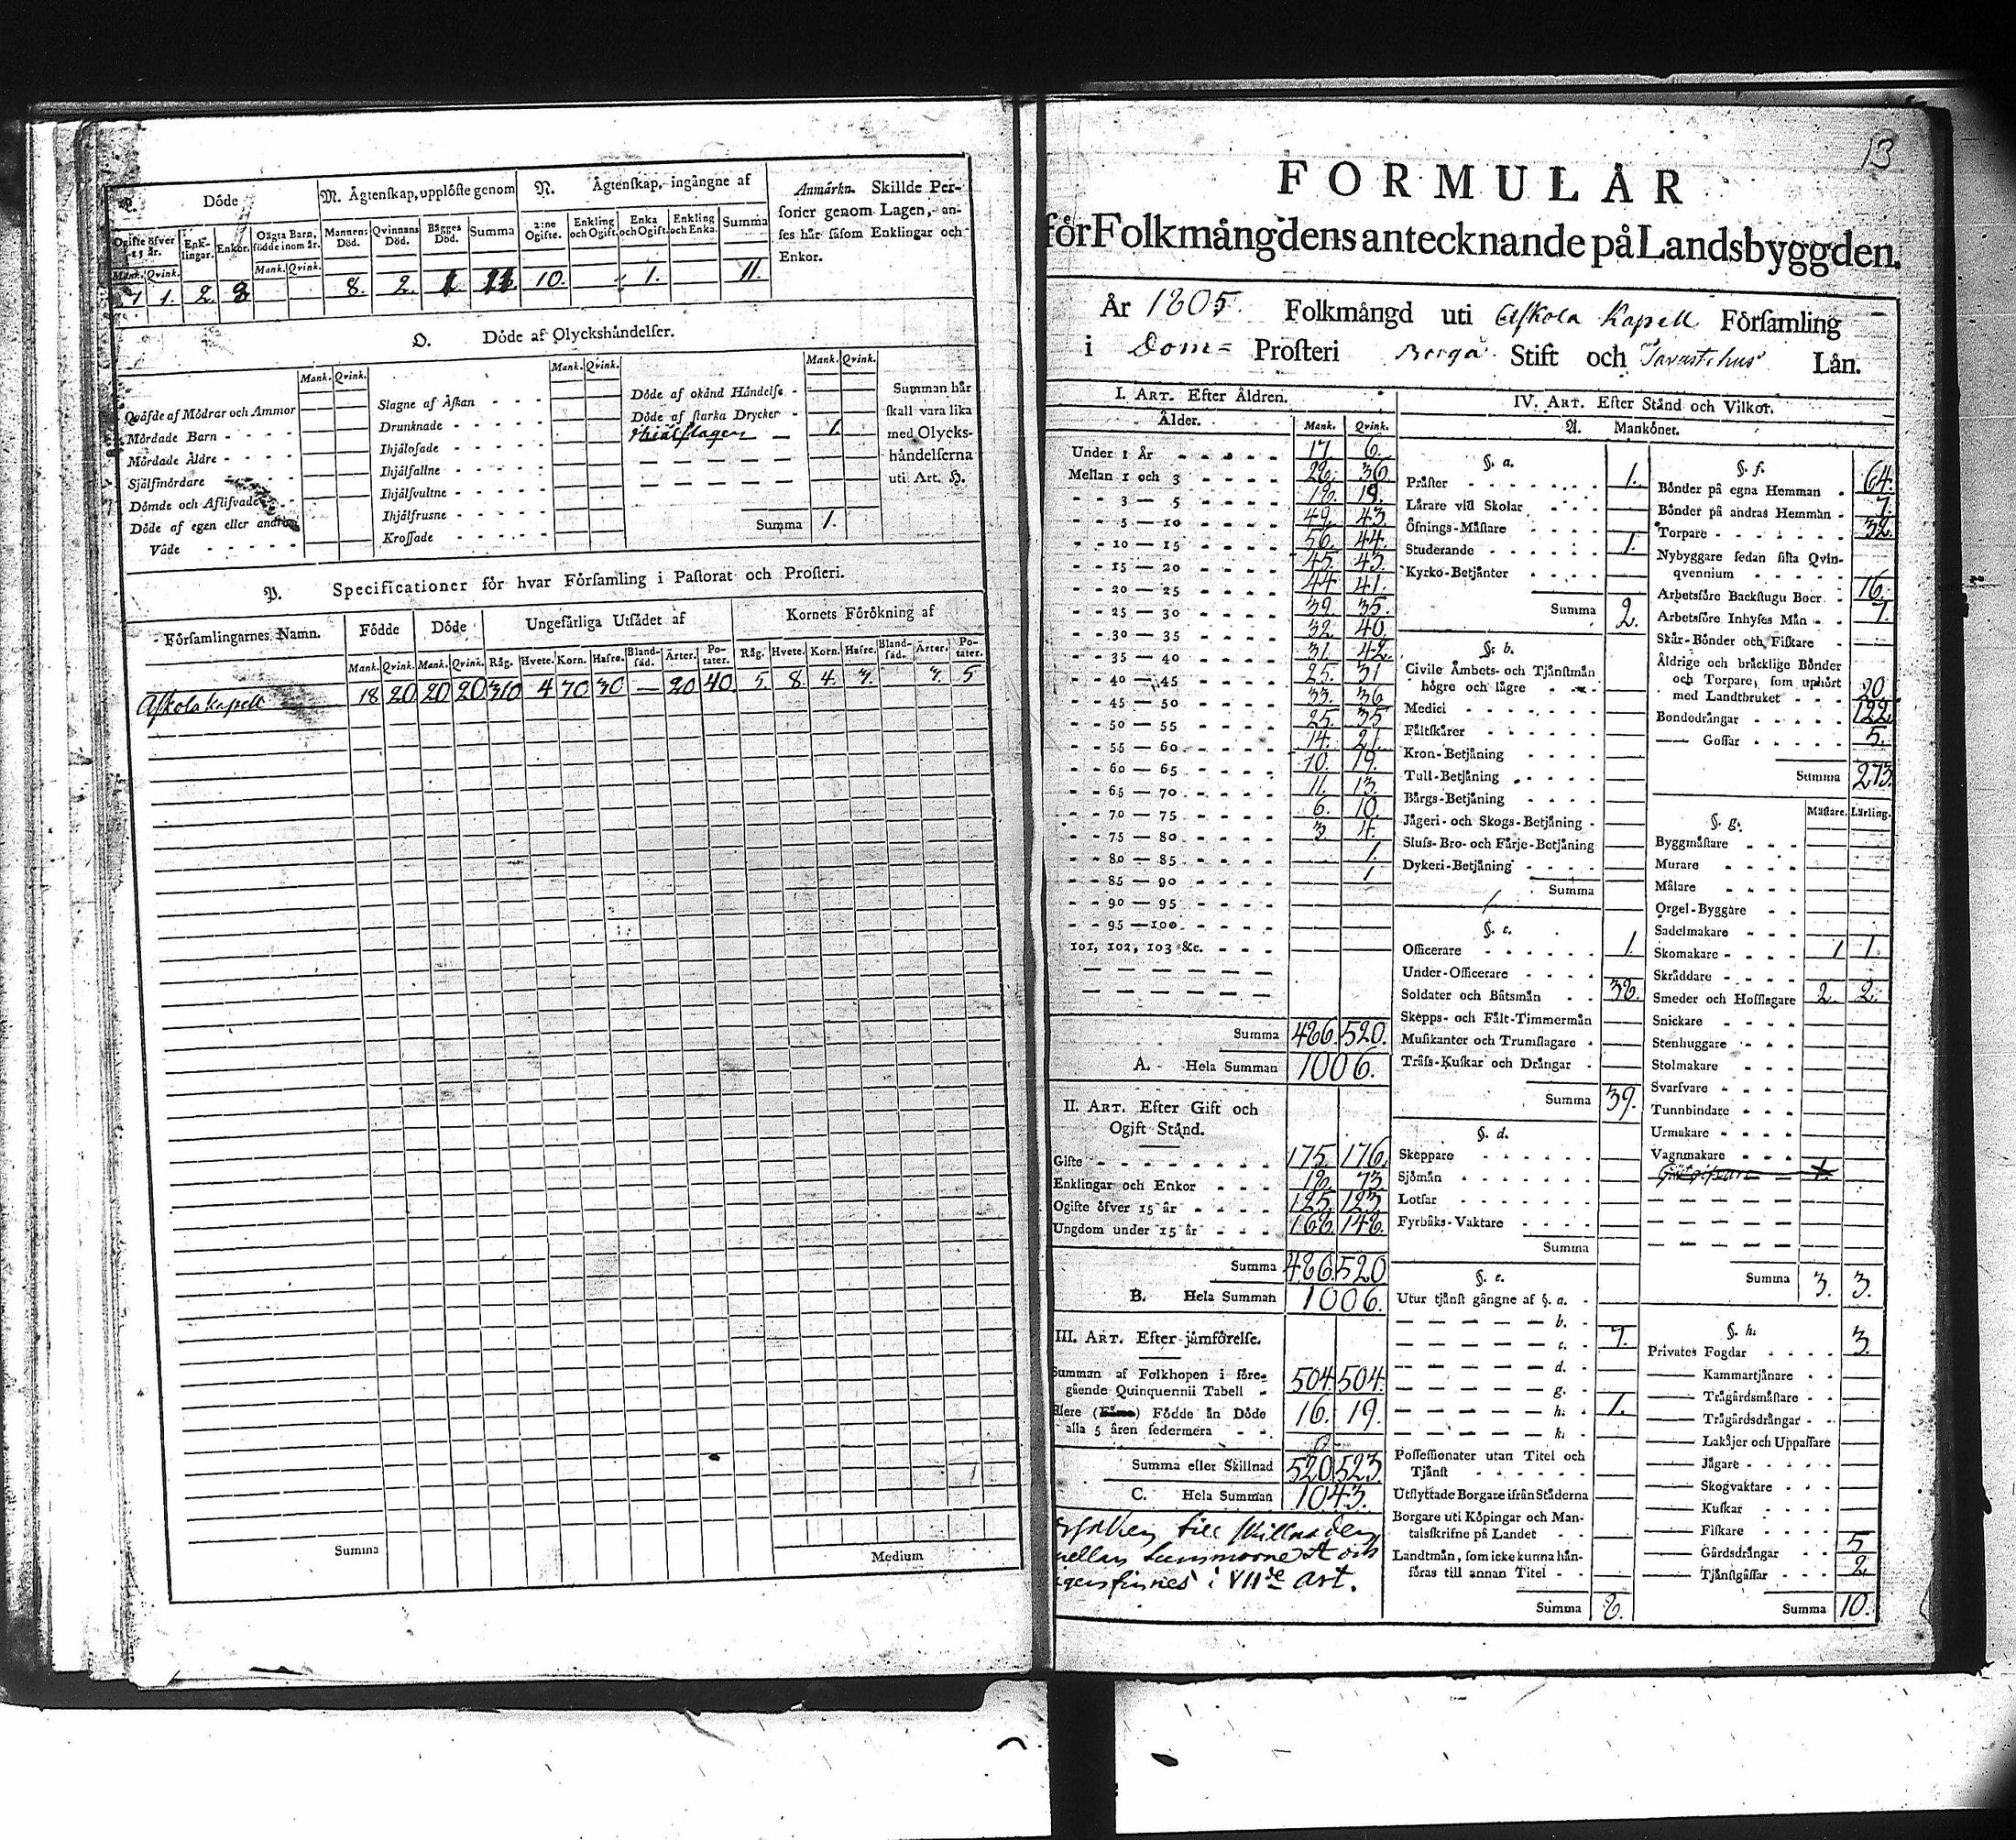 Döde
M. Ägtenskap, upplöste genom
N. Ägtenskap, ingångne af
Anmärkn. Skillde Personer genom Lagen, anses här såsom Enklingar och Enkor.
Ogifte öfver 15 år. Enklingar. Enkor. Oägta Barn, födde inom år. Mannens Död. Qvinnans Död. Bägges Död. Summa 2:ne Ogifte. Enkling och Ogift. Enka och Ogift. Enkling och Enka. Summa
Mank. Qvink. Mank. Qvink.
1 1. 2. 3 8. 2. 1 11 10. 1. 11.
O. Döde af Olyckshändelser.
Mank. Qvink. Mank. Qvink. Mank. Qvink.
Qväfde af Mödrar och Ammor
Mördade Barn
Mördade Äldre
Själfmördare
Dömde och Aflifvade
Döde af egen eller andras
Våde
Slagne af Åskan
Drunknade
Ihjälosade
Ihjälfallne
Ihjälsvultne
Ihjälfrusne
Krossade
Döde af okänd Händelse
Döde af starka Drycker
Ihiälslagen 1.
Summa 1.
Summan här
skall vara lika
med Olycks-
händelserna
uti Art. H.
P. Specificationer för hvar Församling i Pastorat och Prosteri.
Församlingarnes Namn. Födde Döde Ungefärliga Utsädet af Kornets Förökning af
Mank. Qvink. Mank. Qvink. Råg. Hvete. Korn. Hafre. Blandsäd. Ärter. Potater. Råg. Hvete. Korn. Hafre. Blandsäd. Ärter. Potater.
Askola kapell 18 20 20 20 310 4 70 30 — 20 40 5. 8. 4. 3. 3. 5
Summa
Medium
13
FORMULÄR
för Folkmängdens antecknande på Landsbyggden.
År 1805. Folkmängd uti Askola Kapell Församling
i Dom= Prosteri Borgå Stift och Tavastehus Län.
I. Art. Efter Åldren.
Ålder. Mank. Qvink.
Under 1 År 17. 6.
Mellan 1 och 3 28. 36.
3 — 5 18. 19.
5 — 10 49. 43.
10 — 15 56. 44.
15 — 20 45. 43.
20 — 25 44 41.
25 — 30 39. 35.
30 — 35 32. 40.
35 — 40 31. 42.
40 — 45 25. 31
45 — 50 33. 36
50 — 55 25. 35
55 — 60 14. 21.
60 — 65 10. 19.
65 — 70 11. 13.
70 — 75 6. 10.
75 — 80 3 4.
80 — 85 1.
85 — 90 1
90 — 95
95 — 100
101, 102, 103 &c.
Summa 486. 520.
A. Hela Summan 1006.
II. Art. Efter Gift och
Ogift Stånd.
Gifte 175. 176.
Enklingar och Enkor 18. 73.
Ogifte öfver 15 år 125. 123.
Ungdom under 15 år 168. 148.
Summa 486. 520
B. Hela Summan 1006.
III. Art. Efter jämförelse.
Summan af Folkhopen i före-
gående Quinquennii Tabell 504. 504.
Flere (Färre) Födde än Döde 16. 19.
alla 5 åren sedermera
Summa efter Skillnad 520 523.
C. Hela Summan 1043.
till skillnaden
mellan Summorne A och
finnes i VII:de art.
IV. Art. Efter Stånd och Vilkor.
A. Mankönet.
§. a.
Präster 1.
Lärare vid Skolar
Öfnings-Mästare
Studerande 1.
Kyrko-Betjänter
Summa 2.
§. b.
Civile Ämbets- och Tjänstmän
högre och lägre
Medici
Fältskärer
Kron-Betjäning
Tull-Betjäning
Bärgs-Betjäning
Jägeri- och Skogs-Betjäning
Sluss- Bro- och Färje-Betjäning
Dykeri-Betjäning
Summa
§. c.
Officerare 1.
Under-Officerare
Soldater och Båtsmän 38.
Skepps- och Fält-Timmermän
Musikanter och Trumslagare
Träss-Kuskar och Drängar
Summa 39.
§. d.
Skeppare
Sjömän
Lotsar
Fyrbåks-Vaktare
Summa
§. e.
Utur tjänst gångne af §. a.
b.
c. 7.
d.
g.
h. 1.
k.
Possessionater utan Titel och
Tjänst
Utflyttade Borgare ifrån Städerna
Borgare uti Köpingar och Man-
talsskrifne på Landet
Landtmän, som icke kunna hän-
föras till annan Titel
Summa 8.
§. f.
Bönder på egna Hemman 64.
Bönder på andras Hemman 7.
Torpare 32.
Nybyggare sedan sista Qvin-
qvennium
Arbetsföre Backstugu Boer 16.
Arbetsföre Inhyses Män 7.
Skär-Bönder och Fiskare
Åldrige och bräcklige Bönder
och Torpare, som uphört
med Landtbruket 20.
Bondedrängar 122.
Gossar 5.
Summa 273
§. g. Mästare. Lärling.
Byggmästare
Murare
Målare
Orgel-Byggare
Sadelmakare
Skomakare 1 1.
Skräddare
Smeder och Hofslagare 2. 2.
Snickare
Stenhuggare
Stolmakare
Svarfvare
Tunnbindare
Urmakare
Vagnmakare
Summa 3. 3.
§. h.
Privates Fogdar 3.
Kammartjänare
Trägårdsmästare
Trägårdsdrängar
Lakäjer och Uppassare
Jägare
Skogvaktare
Kuskar
Fiskare
Gårdsdrängar 5
Tjänstgässar 2
Summa 10.